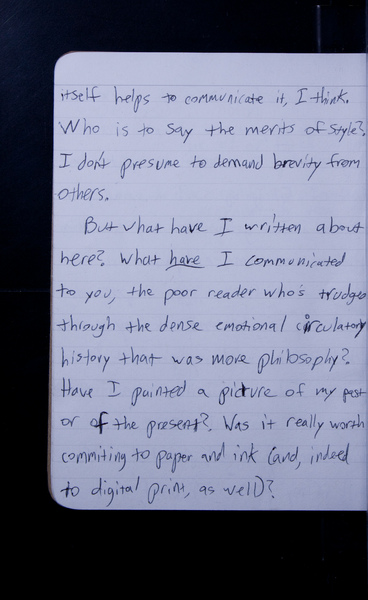 itself helps to communicate it, I think.
Who is to say the merits of style?
I don't presume to demand brevity from
others.
But what have I written about
here? What have I communicated
to you, the poor reader who's trudged
through the dense emotional circulatory
history that was more philosophy?
Have I painted a picture of my past
or of the present? Was it really worth
commiting to paper and ink (and, indeed
to digital print, as well)?